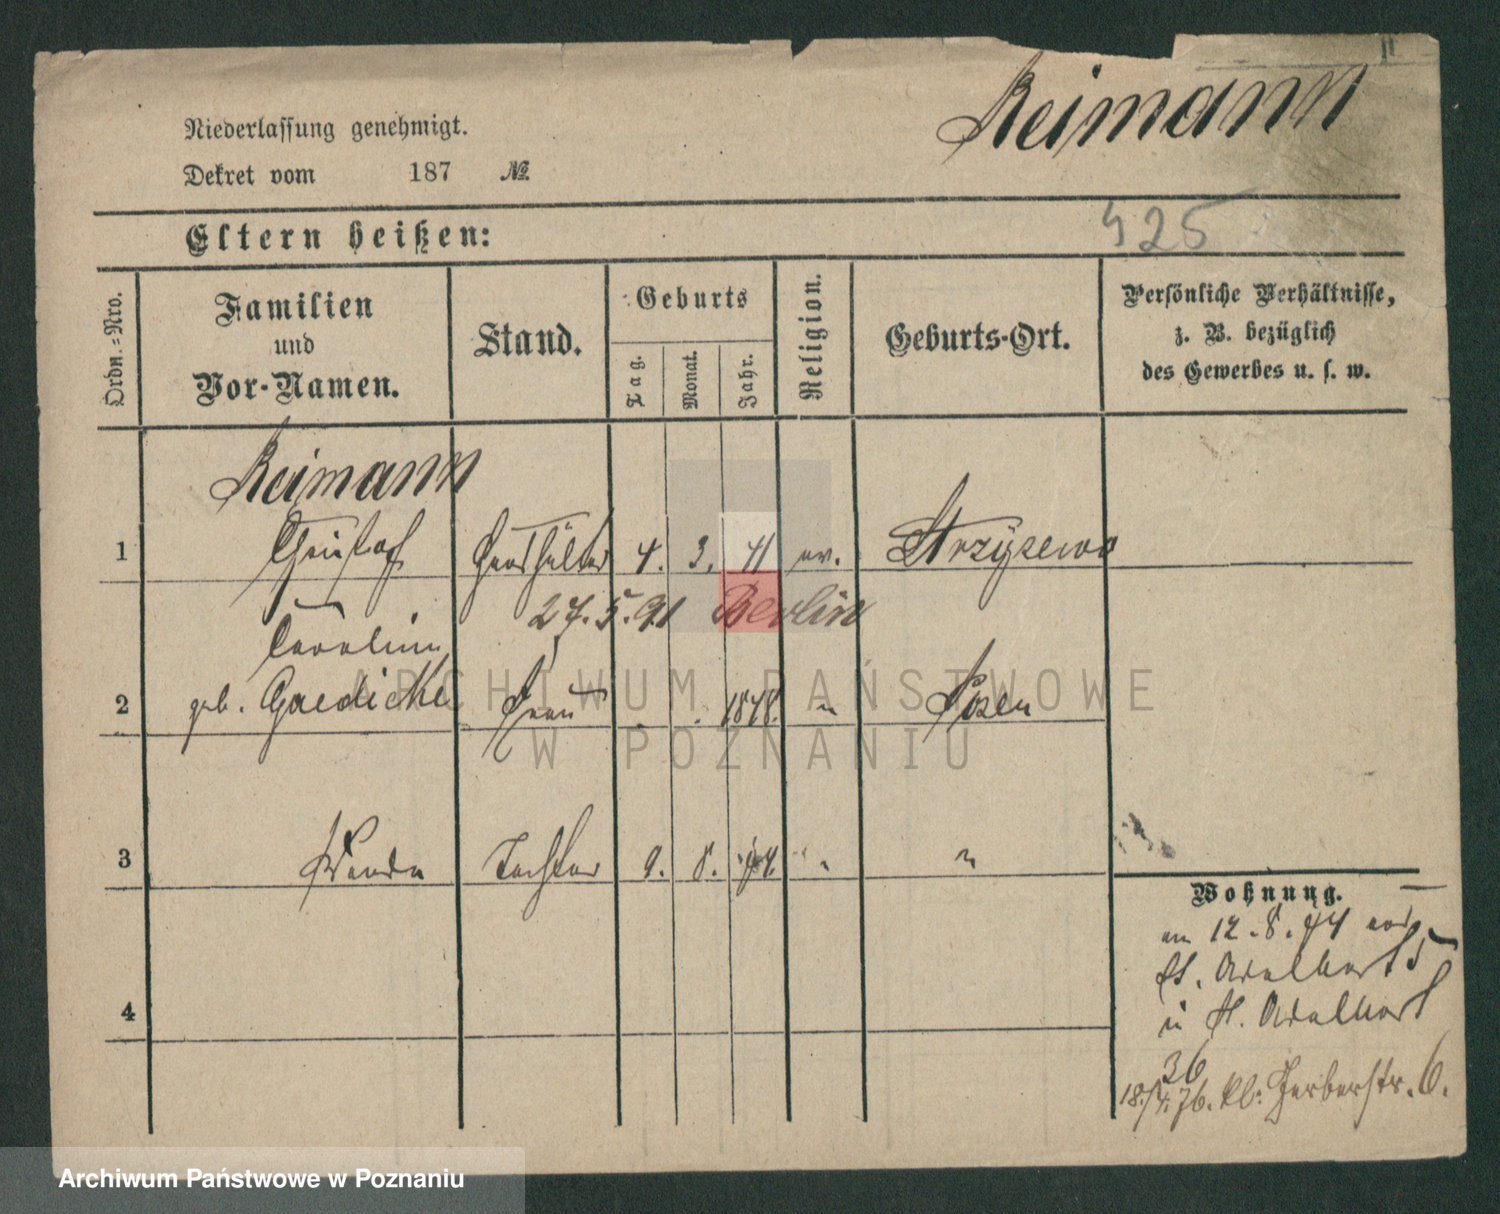 Reimann
Niederlassung genehmigt.
Dekret vom 187 №.
Eltern heißen:
425
Ordn.=Nro.
Familien
und
Vor-Namen.
Stand.
Geburts
Tag.
Monat.
Jahr.
Religion.
Geburts-Ort.
Persönliche Verhältnisse,
z. B. bezüglich
des Gewerbes u. s. w.
Reimann
1 Christof Haushälter 4. 3. 41 ev. Strzyżewo
27.5.91 Berlin
Caroline
2 geb. Gaedicke Frau 1848. " Posen
3 Wanda Tochter 9. 8. 74. " "
Wohnung.
am 12.8.74 von
St. Adalbert 5
in St. Adalbert
4
36
18./4.76. kl. Gerberstr. 6.
ARCHIWUM PAŃSTWOWE
W POZNANIU
Archiwum Państwowe w Poznaniu